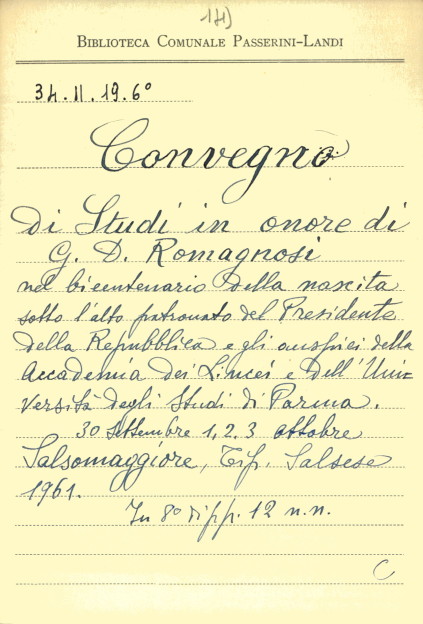 BIBLIOTECA COMUNALE PASSERINI-LANDI
34.II.19.6°
Convegno
Di Studi in onore di
G. D. Romagnosi
nel bicentenario della nascita
sotto l'alto patronato del Presidente
della Repubblica e gli auspici della
Accademia dei Lincei e dell'Uni=
versità degli Studi di Parma.
30 settembre 1, 2, 3 ottobre
Salsomaggiore, Tip. Salsese
1961.
In 8° di pp. 12 n.n.
C